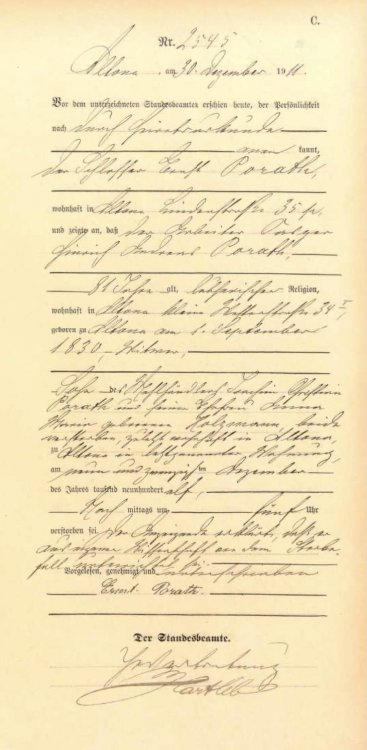 C.
Nr. 2545
Altona am 30. Dezember 1911.
Vor dem unterzeichneten Standesbeamten erschien heute, der Persönlichkeit
nach durch Heiratsurkunde
kannt,
der Schlosser Ernst Porath,
wohnhaft in Altona 35 pt.
und zeigte an, daß der Arbeiter
Hinrich Andreas Porath,
81 Jahre alt, lutherischer Religion,
wohnhaft in Altona kleine 34 I,
geboren zu Altona am 1. September
1830, Witwer,
Sohn des Joachim Christian
Porath und seiner Ehefrau Anna
Maria geborenen Holzmann, beide
verstorben, zuletzt wohnhaft in Altona,
zu Altona in Wohnung,
am neun und zwanzigsten Dezember
des Jahres tausend neunhundert elf,
Nach mittags um fünf Uhr
verstorben sei, der Anzeigende erklärt, daß er
aus eigener Wissenschaft von dem Sterbe-
fall unterrichtet sei.
Vorgelesen, genehmigt und unterschrieben
Ernst Porath.
Der Standesbeamte.
In Vertretung